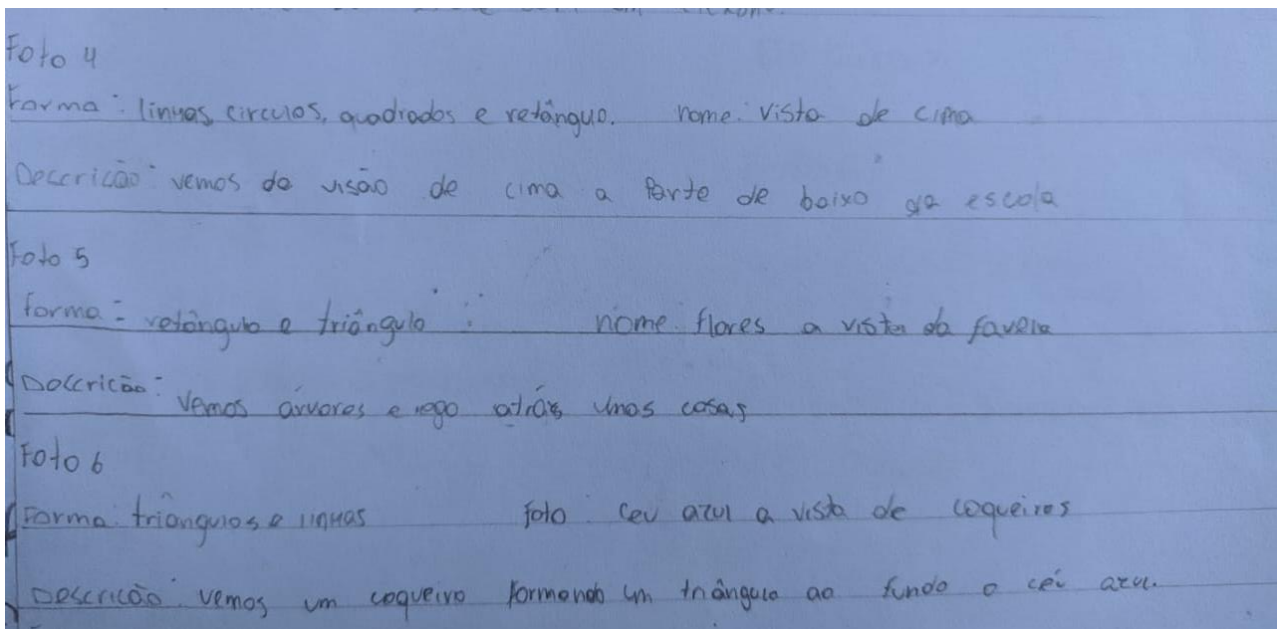 Foto 4
Forma: linhas, circulos, quadrados e retânguo. nome: vista de cima
Descricão: vemos da visão de cima a Parte de baixo da escola
Foto 5
forma: retângulo e triângulo nome: flores a vista da favela
Descricão: vemos árvores e atrás umas casas
Foto 6
Forma: triangulos e linhas foto: ceu azul a vista de coqueiros
Descricão: vemos um coqueiro formando um triângulo ao fundo o céu azul.